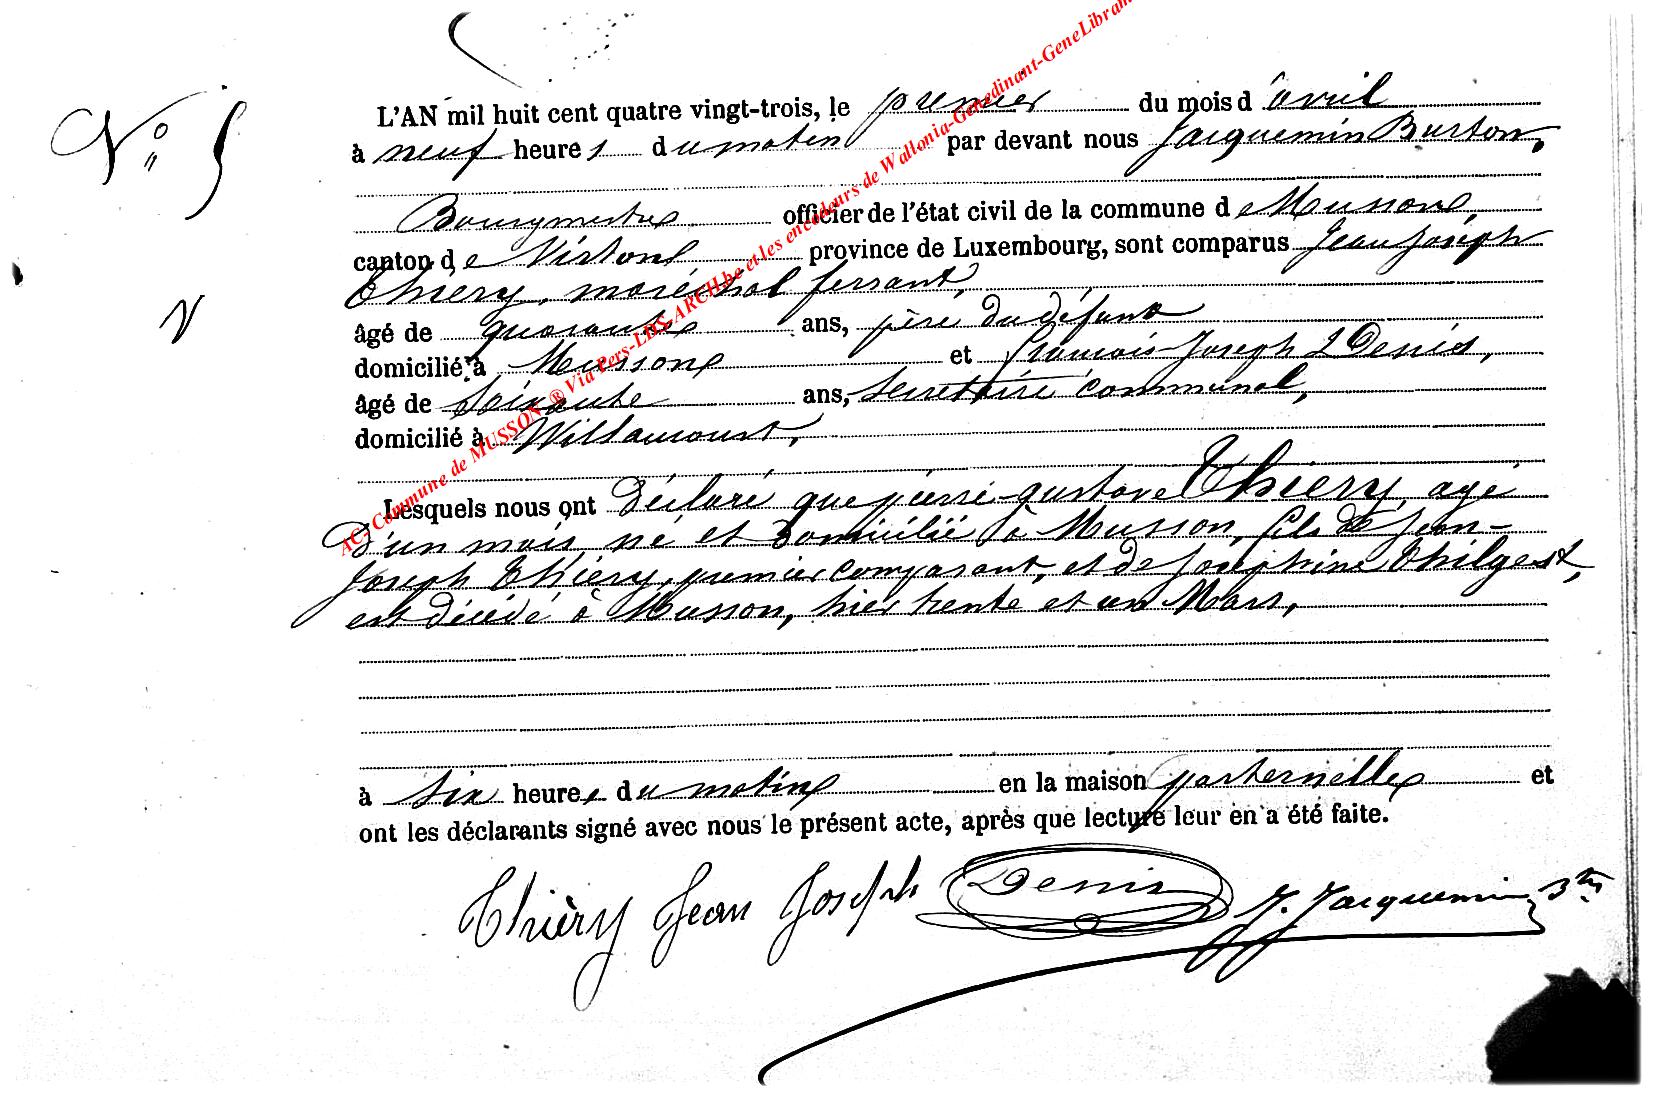 N° 5
L'AN mil huit cent quatre vingt-trois, le premier du mois d'avril
à neuf heures du matin par devant nous Jacquemin Burton,
Bourgmestre officier de l'état civil de la commune de Musson,
canton de Virton province de Luxembourg, sont comparus Jean Joseph
Thiery, maréchal ferrant,
âgé de quarante ans, père du défunt
domicilié à Musson et François-Joseph Denis,
âgé de Soixante ans, Secrétaire communal,
domicilié à Willancourt,
Lesquels nous ont déclaré que pierre-gustave Thiery, agé
d'un mois, né et domicilié à Musson, fils de Jean-
Joseph Thiery, premier comparant, et de Joséphine Thilgest,
est décédé à Musson, hier trente et un Mars,
à six heures du matin en la maison paternelle et
ont les déclarants signé avec nous le présent acte, après que lecture leur en a été faite.
Thièry Jean Joseph Denis J. Jacquemin Btn
AC: Commune de MUSSON ® Via Pers-LDS-ARCH.be et les encodeurs de Wallonia-Genedinant-GeneLibram